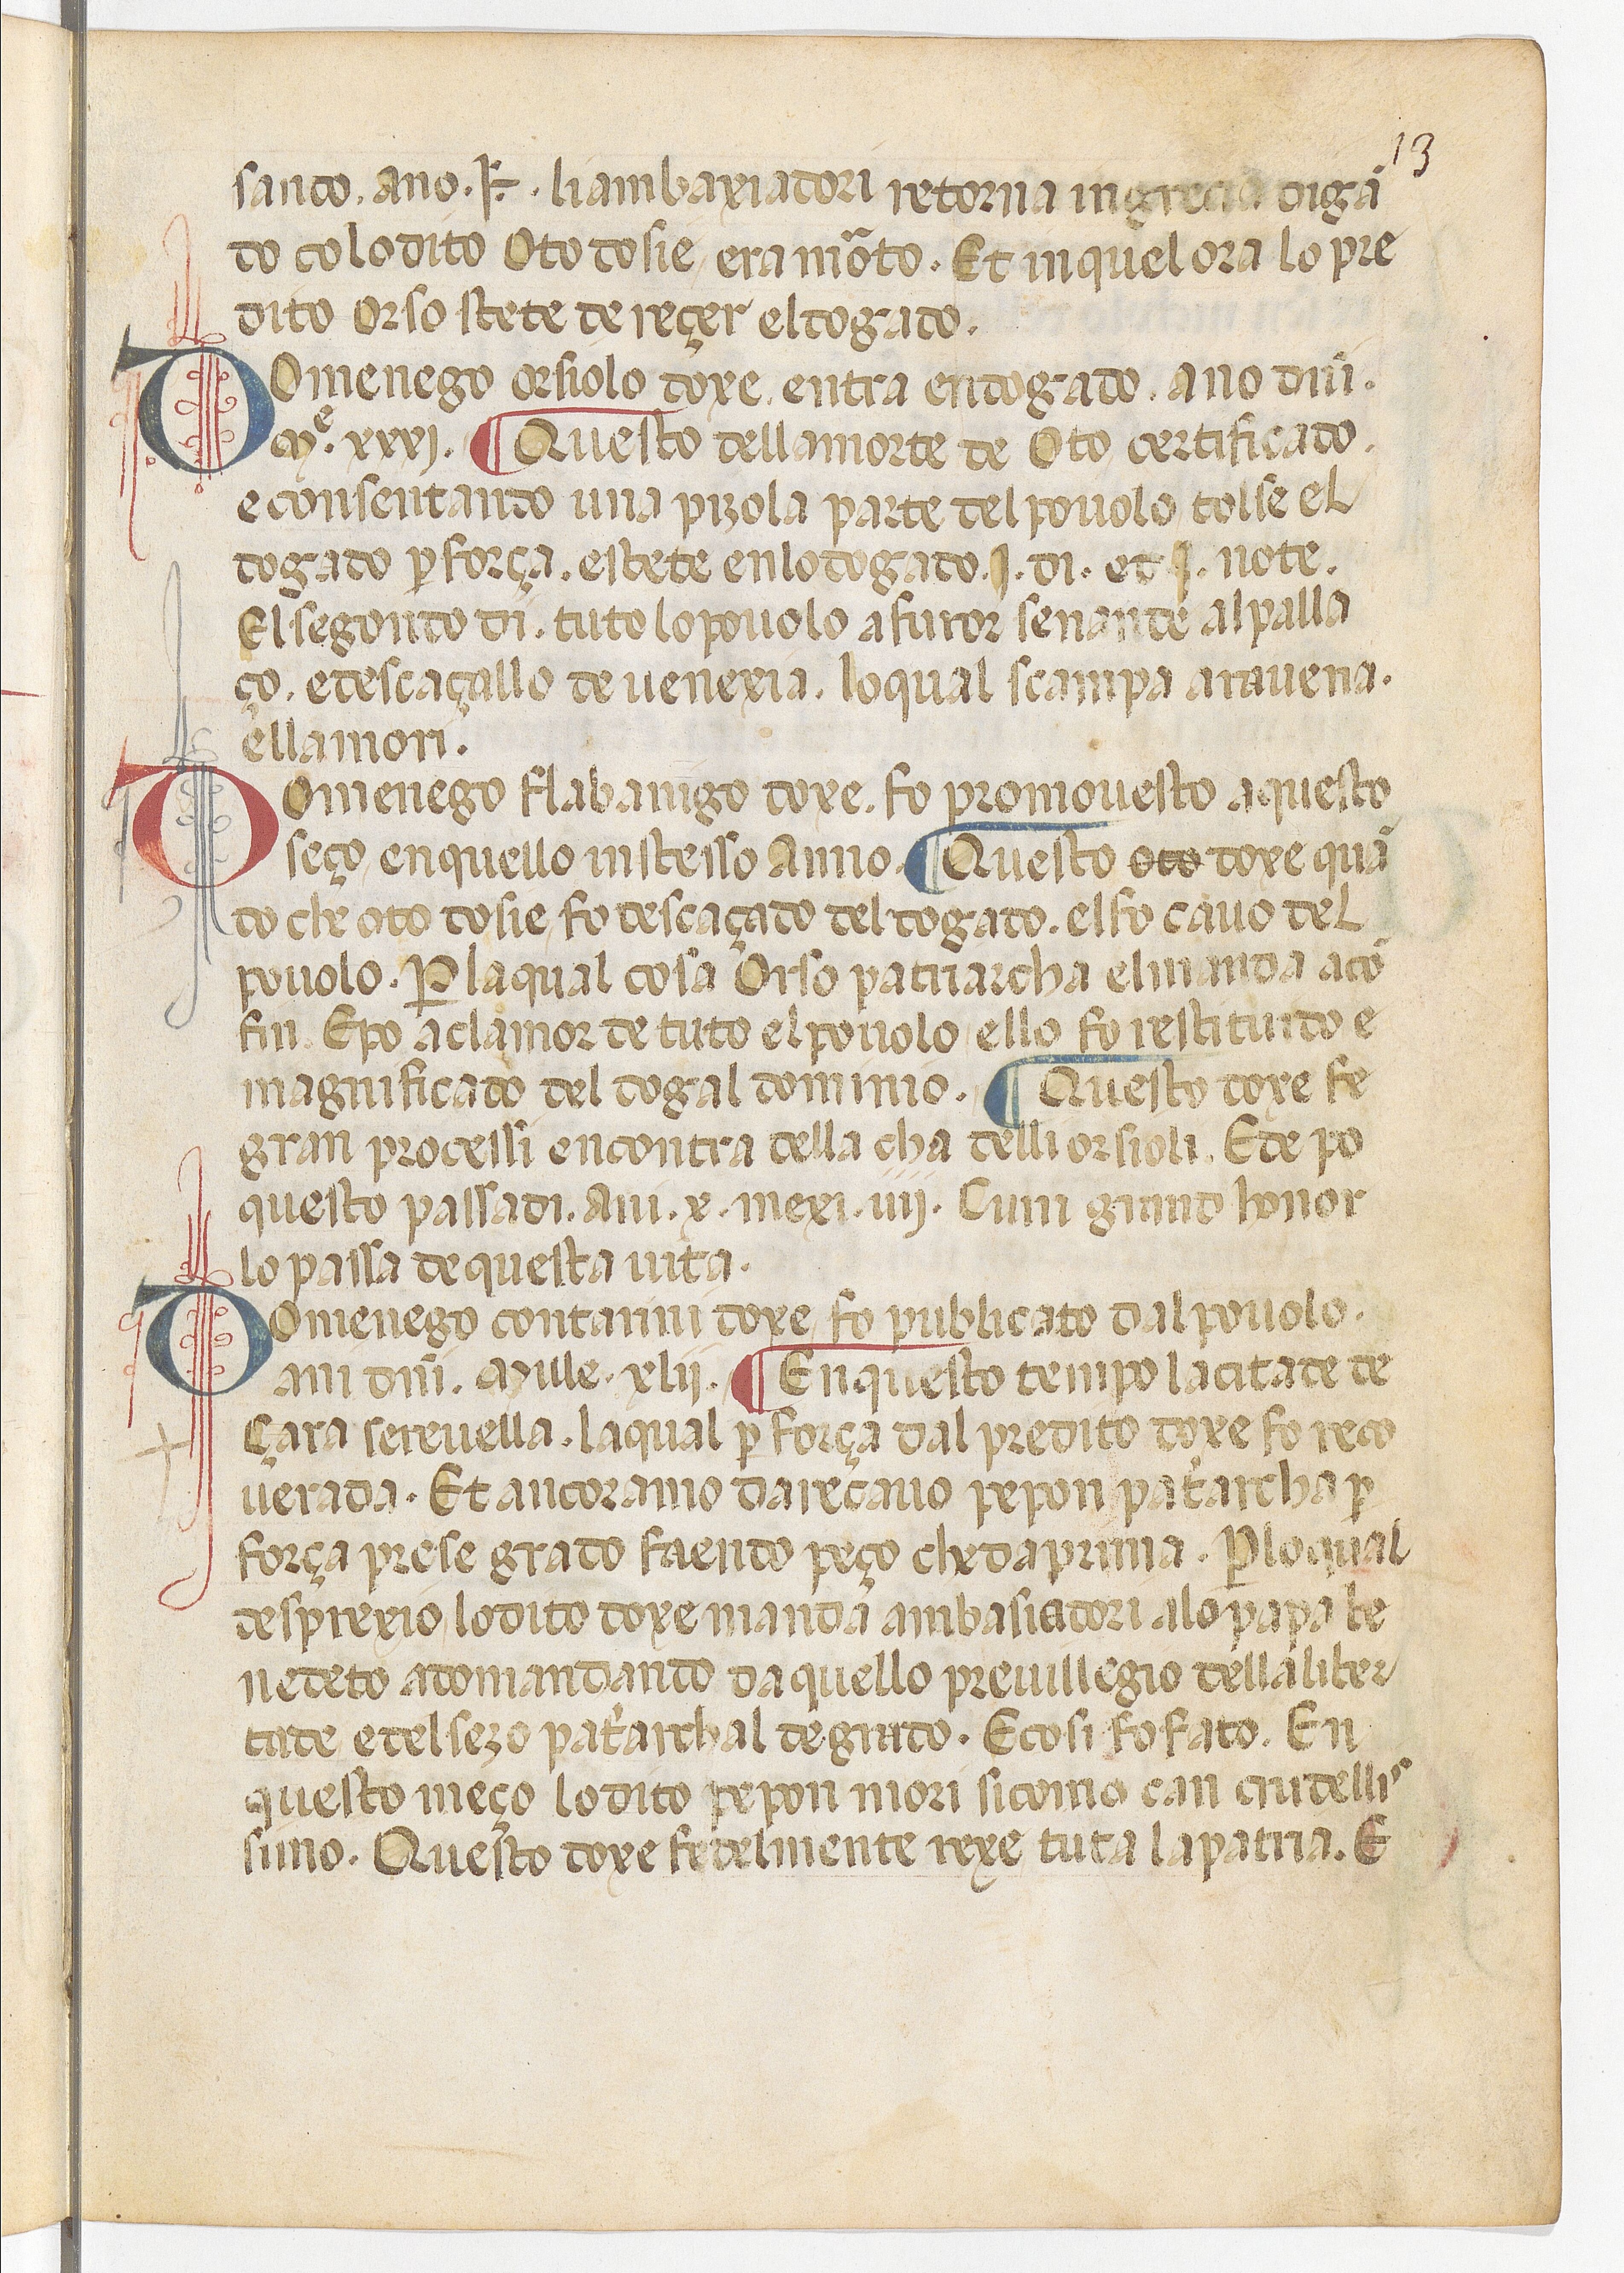 13
sando. ano. j̵. li ambaxiadori retorna in grecia digā
do co lo dito Oto dosie era mōto. Et in quel ora lo pre
dito Orso stete de reçer el dogado.
DOmenego orsiolo doxe. entra en dogado. ano dn̄i.
Mᵉ. xxxj. ¶ Questo della morte de Oto certificado.
e consentando una pizola parte del povolo tolse el
dogado ꝑ força. e stete en lo dogado. j. di. et j. note.
El segondo di. tuto lo povolo a furor se nande al palla
ço. e descaçallo de venexia. lo qual scampa a ravena.
e lla mori.
DOmenego flabanigo doxe. fo promovesto a questo
seço en quello instesso anno. ¶ Questo oto doxe quā
do che oto dosie fo descaçado del dogado. el fo cavo del
povolo. Ꝑ la qual cosa Orso patriarcha el manda a cō
fin. E po a clamor de tuto el povolo ello fo restituido e
magnificado del dogal dominio. ¶ Questo doxe fe
gran processi encontra della cha delli orsioli. E de po
questo passadi. Ani. x. mexi. iiij. Cum grando honor
lo passa de questa vita.
DOmenego contarini doxe fo publicato dal povolo.
ani dn̄i. Mille. xlij. ¶ En questo tempo la citade de
Çara se revella. la qual ꝑ força dal predito doxe fo reco
verada. Et ancoramo da reçavo pepon pat̄archa ꝑ
força prese grado faendo peço che da prima. Ꝑ lo qual
desprexio lo dito doxe manda ambasiadori a lo papa be
nedeto adomandando da quello previllegio della liber
tade e del sezo pat̄archal de grado. E cosi fo fato. En
questo meço lo dito pepon mori si como can crudellis
simo. Questo doxe fedelmente rexe tuta la patria. E